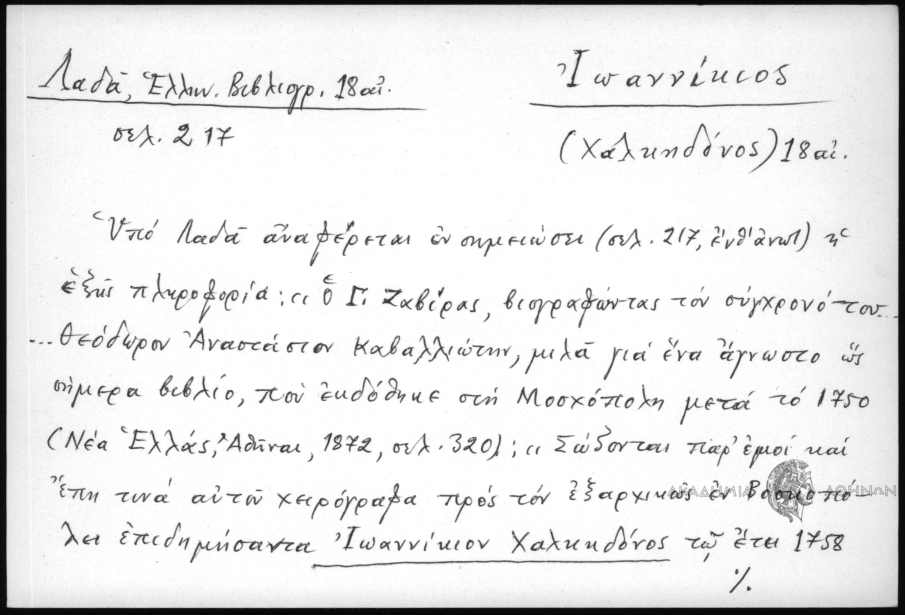 Λαδᾶ, Ἑλλην. Βιβλιογρ. 18 αἰ.
σελ. 217
Ἰωαννίκιος
(Χαλκηδόνος) 18 αἰ.
Ὑπό Λαδᾶ ἀναφέρεται ἐν σημειώσει (σελ. 217, ἔνθ' ἀνωτ) ἡ
ἑξῆς πληροφορία: «ὁ Γ. Ζαβίρας, βιογραφώντας τόν σύγχρονό του...
...Θεόδωρον Ἀναστάσιον Καβαλλιώτην, μιλᾶ γιά ἕνα ἄγνωστο ὥς
σήμερα βιβλίο, πού ἐκδόθηκε στή Μοσχόπολη μετά τό 1750
(Νέα Ἑλλάς, Ἀθῆναι, 1872, σελ. 320): «Σώζονται παρ' ἐμοί καί
ἔπη τινά αὐτοῦ χειρόγραφα πρός τόν ἐξαρχικῶς ἐν Βοσκοπό-
λει ἐπιδημήσαντα Ἰωαννίκιον Χαλκηδόνος τῷ ἔτει 1758
./.
ΑΚΑΔΗΜΙΑ ΑΘΗΝΩΝ